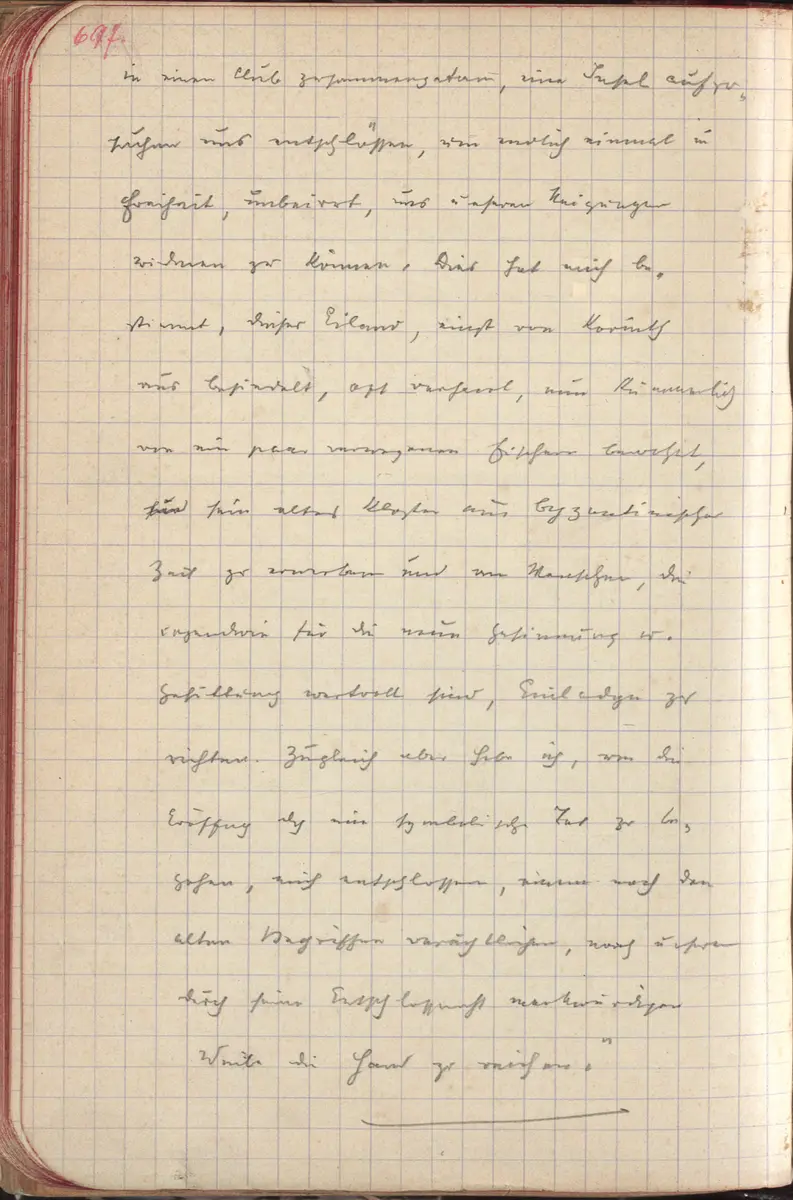 697.
in einen Club zusammengetan, eine Insel aufzu-
suchen uns entschlössen, um endlich einmal in
Freiheit, unbeirrt, uns unseren Neigungen
widmen zu können. Dies hat mich be-
stimmt, dieses Eiland, einst von Korinth
aus besiedelt, oft verheert, nun kümmerlich
von ein paar verwegenen Fischern bewohnt,
sein altes Kloster aus byzantinischer
Zeit zu erwerben und an Menschen, die
irgendwie für die neue Gesinnung u.
Gesittung wertvoll sind, Einladgn zu
richten. Zugleich aber habe ich, um die
Eröffng dch eine symbolische Tat zu be-
gehen, mich entschlossen, einem nach den
alten Begriffen verächtlichen, nach unseren
durch seine Entschlossenht merkwürdigen
Weibe die Hand zu reichen."